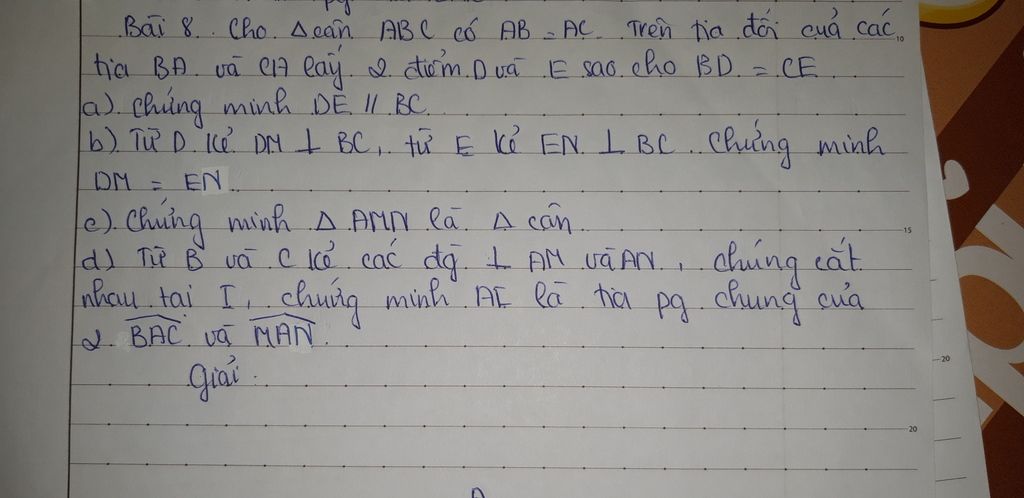 Bài 8. Cho Δ cân ABC có AB = AC. Trên tia đối của các
tia BA và CA lấy 2 điểm D và E sao cho BD = CE
a). Chứng minh DE // BC.
b). Từ D kẻ DM ⊥ BC, từ E kẻ EN ⊥ BC. Chứng minh
DM = EN
c). Chứng minh Δ AMN là Δ cân
d) Từ B và C kẻ các đg ⊥ AM và AN, chúng cắt
nhau tại I, chứng minh AI là tia pg chung của
2 \widehat{BAC} và \widehat{MAN}.
Giải.
15
20
20